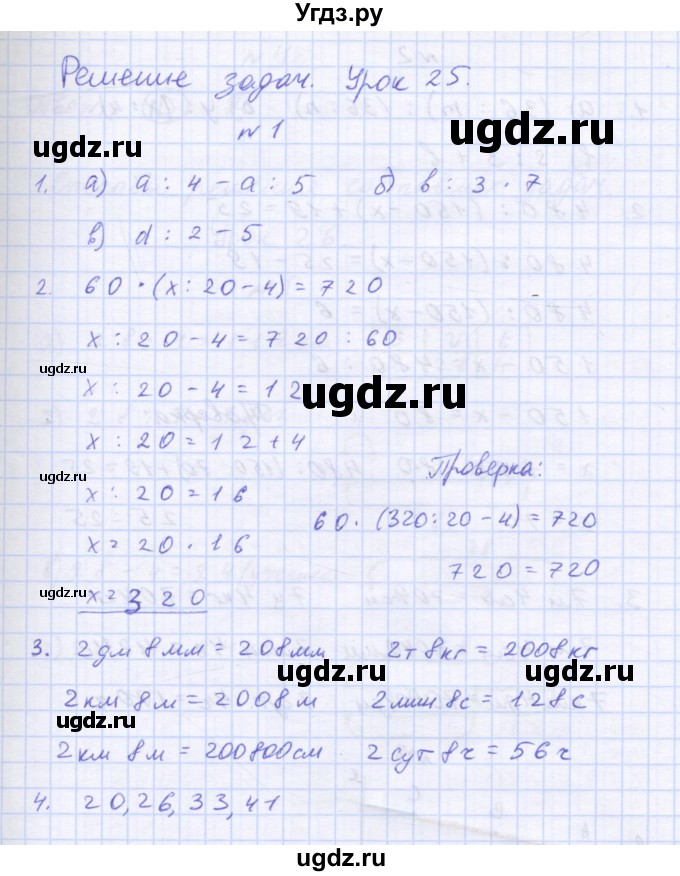 Угдз.ру
Решение задач. Урок 25.
N 1
1. а) a : 4 - a : 5 б) b : 3 · 7
в) d : 2 - 5
2. 60 · (x : 20 - 4) = 720
x : 20 - 4 = 720 : 60
x : 20 - 4 = 12
x : 20 = 12 + 4
x : 20 = 16
x = 20 · 16
x = 320
Проверка:
60 · (320 : 20 - 4) = 720
720 = 720
3. 2дм 8мм = 208мм 2т 8кг = 2008кг
2км 8м = 2008м 2мин 8с = 128с
2км 8м = 200800см 2сут 8ч = 56ч
4. 20, 26, 33, 41
ugdz.ru
ugdz.ru
ugdz.ru
ugdz.ru
ugdz.ru
ugdz.ru
ugdz.ru
ugdz.ru
ugdz.ru
ugdz.ru
ugdz.ru